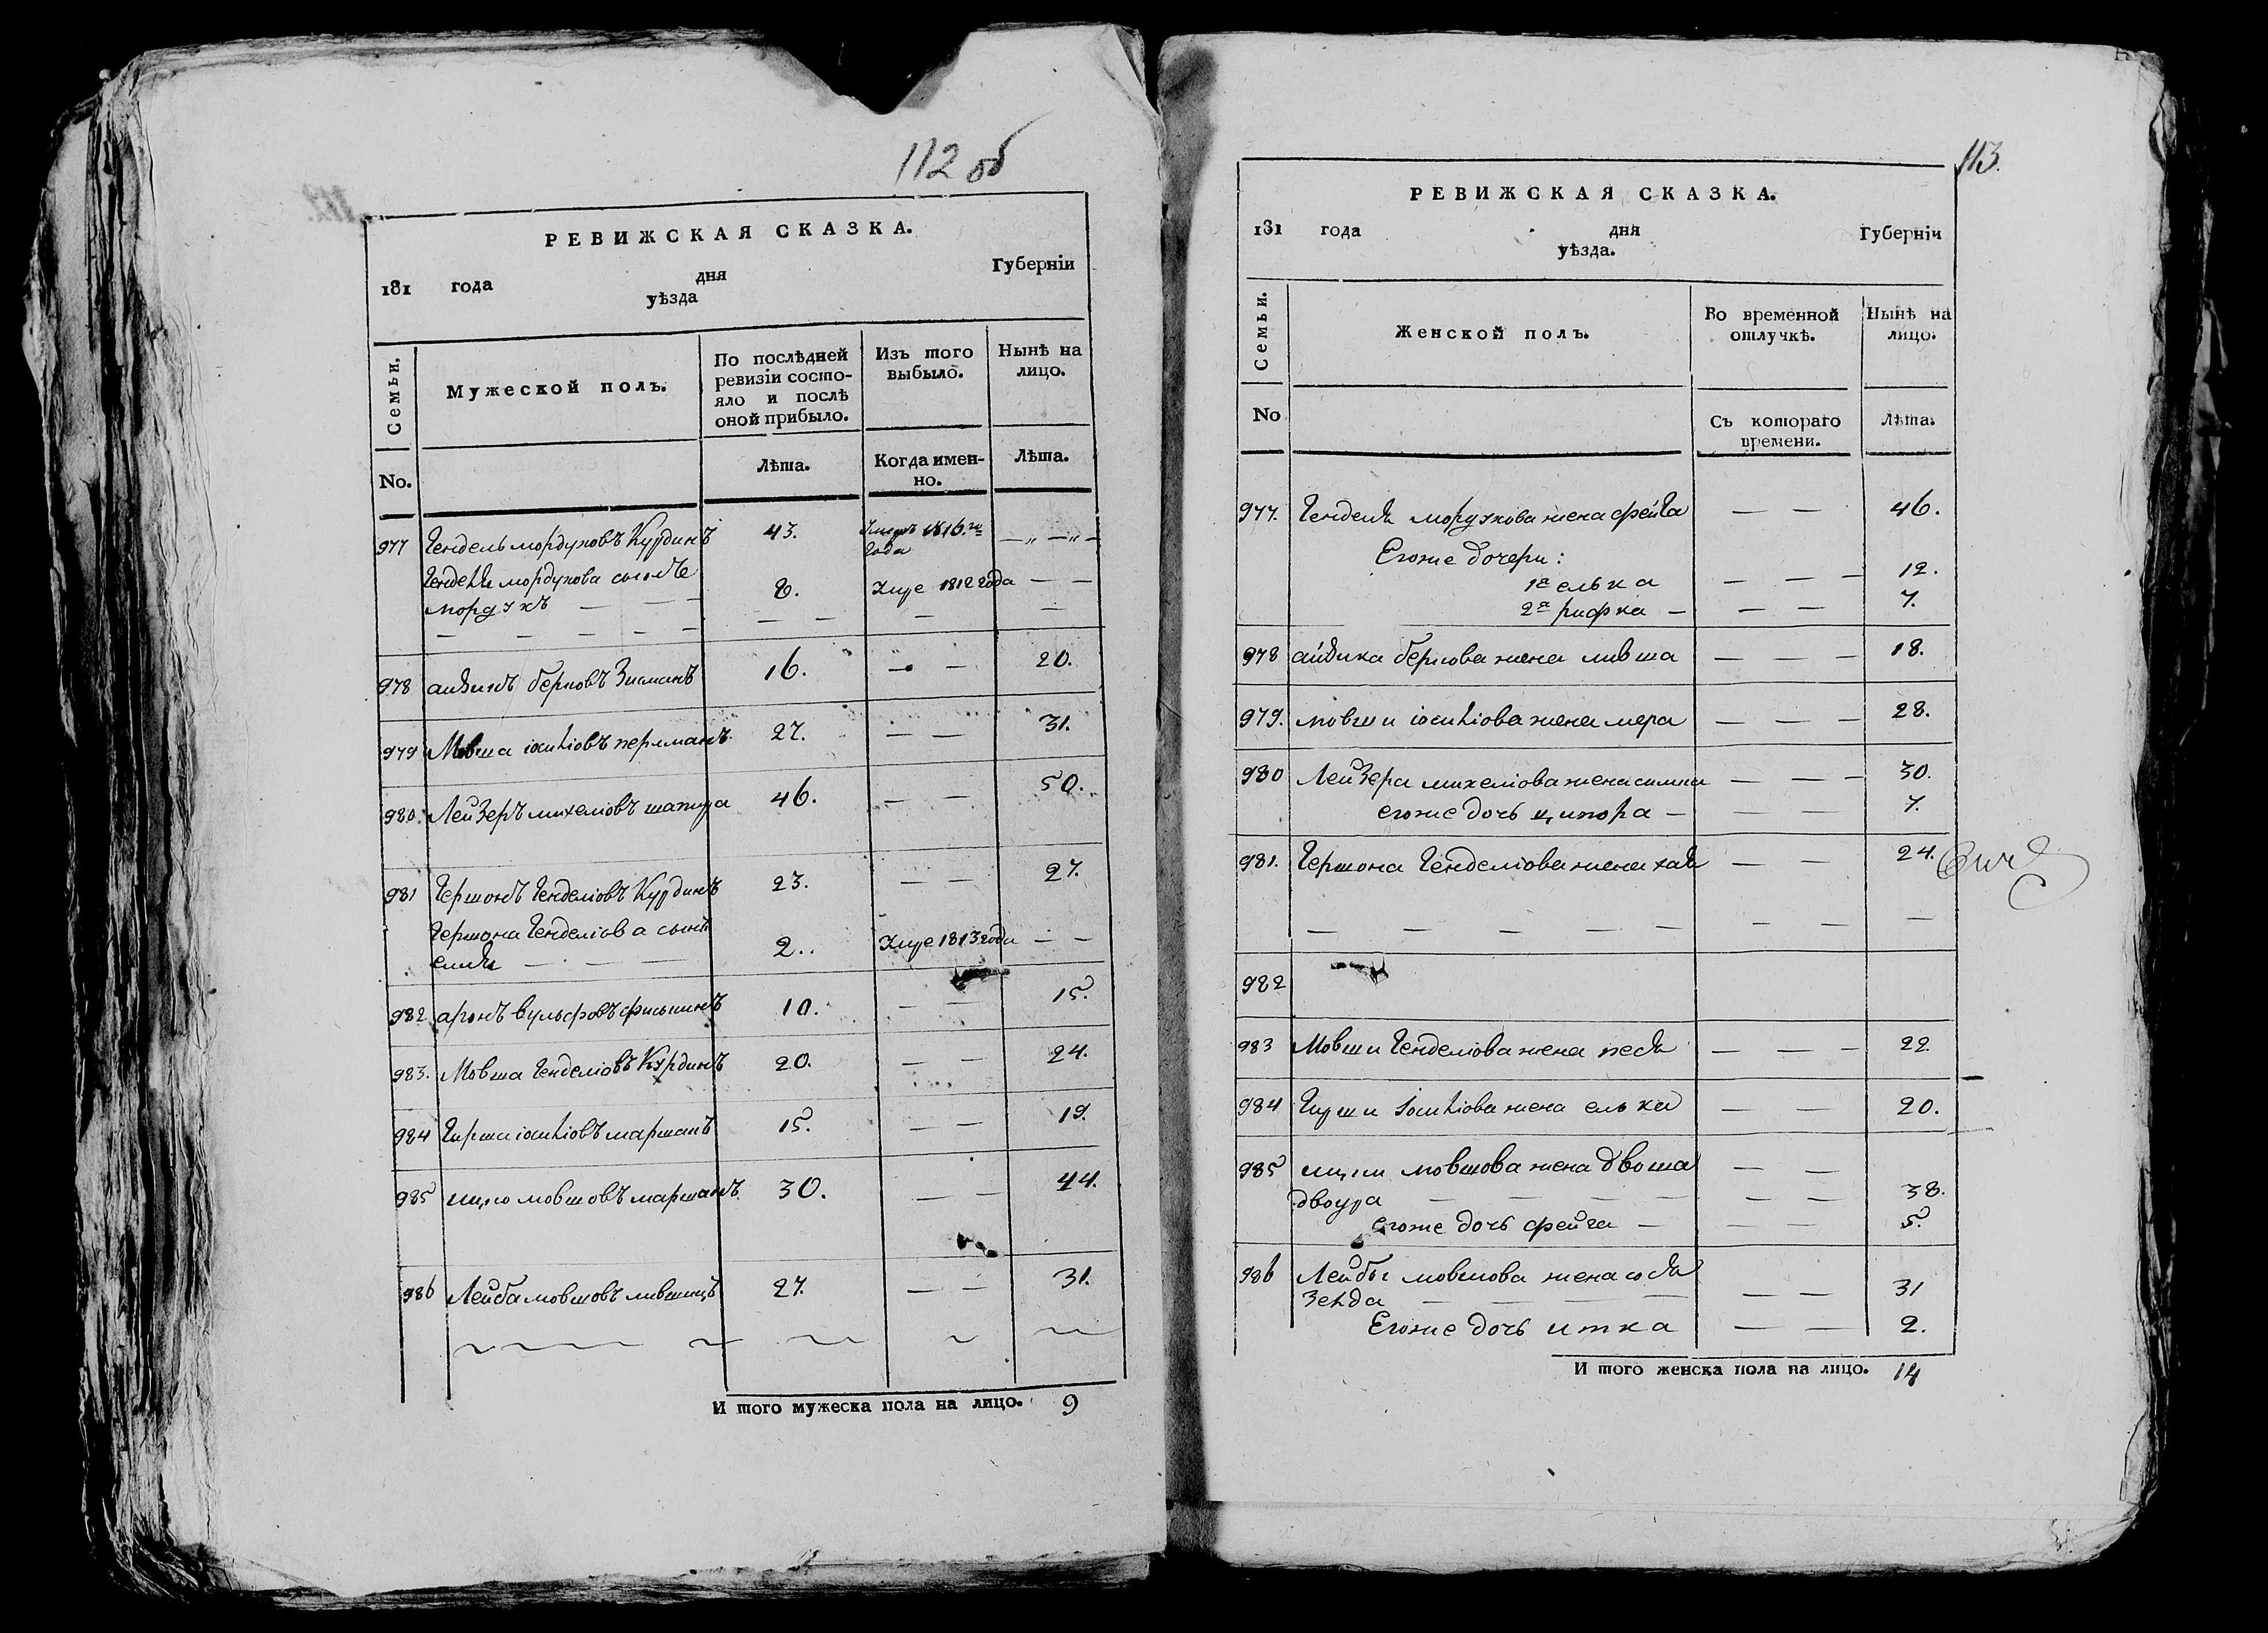 112 об
РЕВИЖСКАЯ СКАЗКА.
181 года дня Губернїи
уѣзда
Семьи. Мужеской полъ. По послѣдней ревизїи состо-яло и послѣ оной прибыло. Изъ того выбыло. Нынѣ на лицо.
No. Лѣта. Когда имен-но. Лѣта.
977 Гендель мордуховъ Курдинъ 43. 1816.го — „ — „ —
года
Генделя мордухова сынъ
мордухъ — — — 8. 1812 года — —
— — — — — — — — —
978 айзикъ берковъ Зисманъ 16. — — 20.
979 Мовша іоселіовъ перлманъ 27. — — 31.
980. Лейзеръ михеліовъ шапира 46. — — 50.
981 Гершонъ Генделіовъ Курдинъ 23. — — 27.
Гершона Генделіова сынъ
— — — 2. 1813 года — —
982 аронъ вульфовъ 10. — — 15.
983. Мовша Генделіовъ Курдинъ 20. — — 24.
984 Гирша іоселіовъ марманъ 15. — — 19.
985 ицко мовшовъ марманъ 30. — — 44.
986 Лейба мовшовъ лившицъ 27. — — 31.
И того мужеска пола на лицо. 9
113.
РЕВИЖСКАЯ СКАЗКА.
181 года дня Губернїи
уѣзда.
Семьи. Женской полъ. Во временной отлучкѣ. Нынѣ на лицо.
No Съ котораго времени. Лѣта.
977. Генделя мордухова жена фейга — — 46.
Егоже дочери:
1я елька — — — 12.
2я рифка — — — 7.
978 айзика беркова жена ливша — — — 18.
979. мовши іоселіова жена мера — — — 28.
980 Лейзера михеліова жена симка — — — 30.
егоже дочь ципора — — — 7.
981. Гершона Генделіова жена хая — — 24.
— — — — — — — —
982
983 Мовши Генделіова жена песя — — — 22
984 Гирши іоселіова жена елька — — 20.
985 ицки мовшова жена двоша — —
двоура — — — — — — 38.
егоже дочь фейга — — — 5.
986 Лейбы мовшова жена сося
зелда — — — — — — 31
Егоже дочь итка — — 2.
И того женска пола на лицо. 14